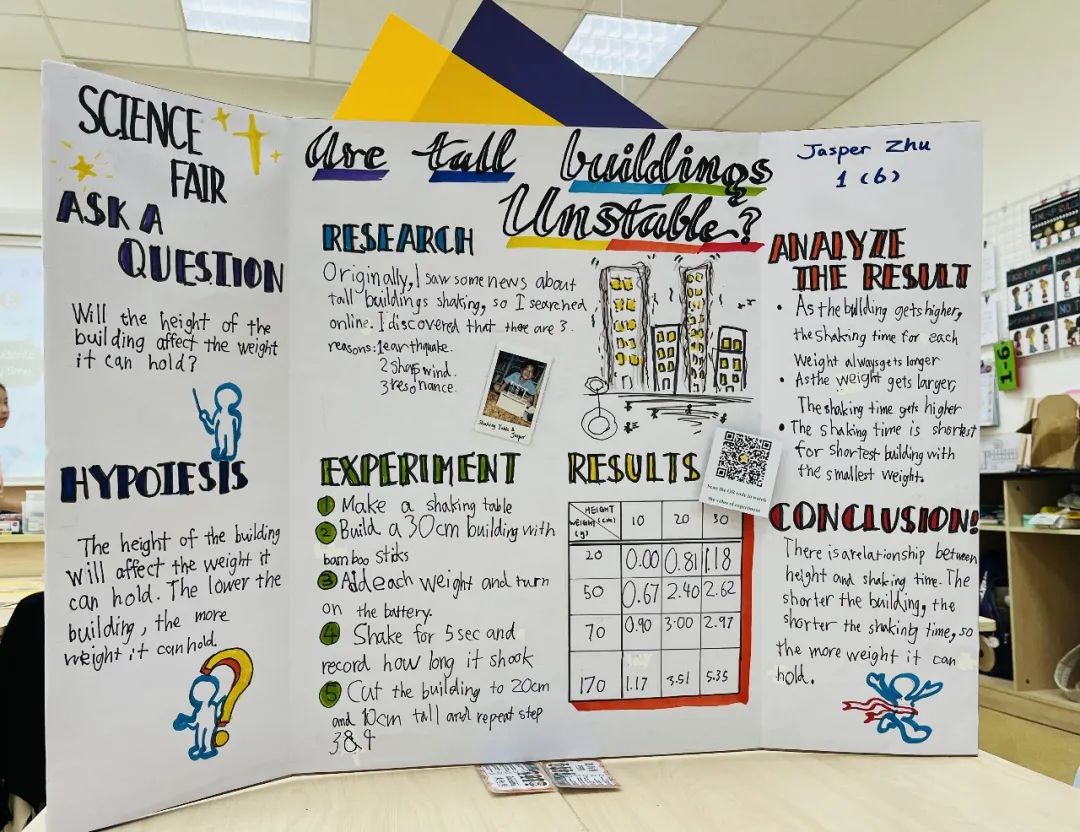 SCIENCE
FAIR
ASK A
QUESTION
Will the height of the
building affect the weight
it can hold?
HYPOTESIS
The height of the building
will affect the weight it
can hold. The lower the
building, the more
weight it can hold.
Are tall buildings
Unstable?
RESEARCH
Originally, I saw some news about
tall buildings shaking, so I searched
online. I discovered that there are 3
reasons: 1earthquake.
2 Strong wind.
3 resonance.
Shaking Table &
Jasper
EXPERIMENT
1 Make a shaking table
2 Build a 30cm building with
bamboo stiks
3 Add each weight and turn
on the battery.
4 Shake for 5sec and
record how long it shook
5 Cut the building to 20cm
and 10cm tall and repeat step
3&4
RESULTS
HEIGHT (cm) WEIGHT (g) 10 20 30
20 0.00 0.81 1.18
50 0.67 2.40 2.62
70 0.90 3.00 2.97
170 1.17 3.51 5.35
Scan the QR code to watch
the video of experiment
Jasper Zhu
1 (6)
ANALYZE
THE RESULT
• As the building gets higher,
the shaking time for each
weight always gets longer
• As the weight gets larger,
The shaking time gets higher
• The shaking time is shortest
for shortest building with
the smallest weight.
CONCLUSION!
There is a relationship between
height and shaking time. The
shorter the building, the
shorter the shaking time, so
the more weight it can
hold.
1-6